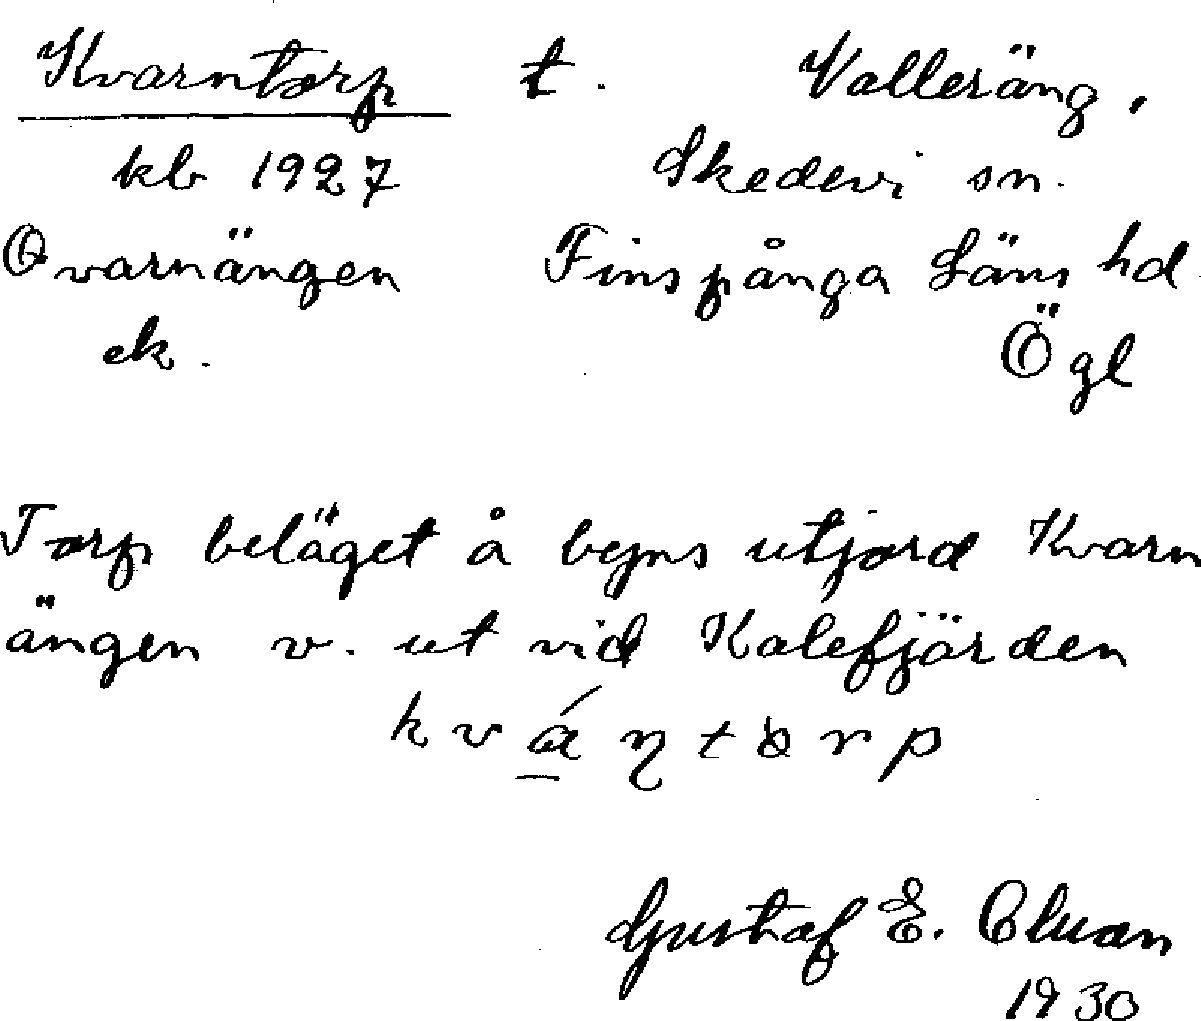 Kvarntorp t. Valleräng.
kb 1927 Skedevi sn.
Qvarnängen Finspånga Läns hd
ek. Ögl
Torp beläget å byns utjord Kvarn
ängen v. ut vid Kalefjärden
Gustaf E.
1930